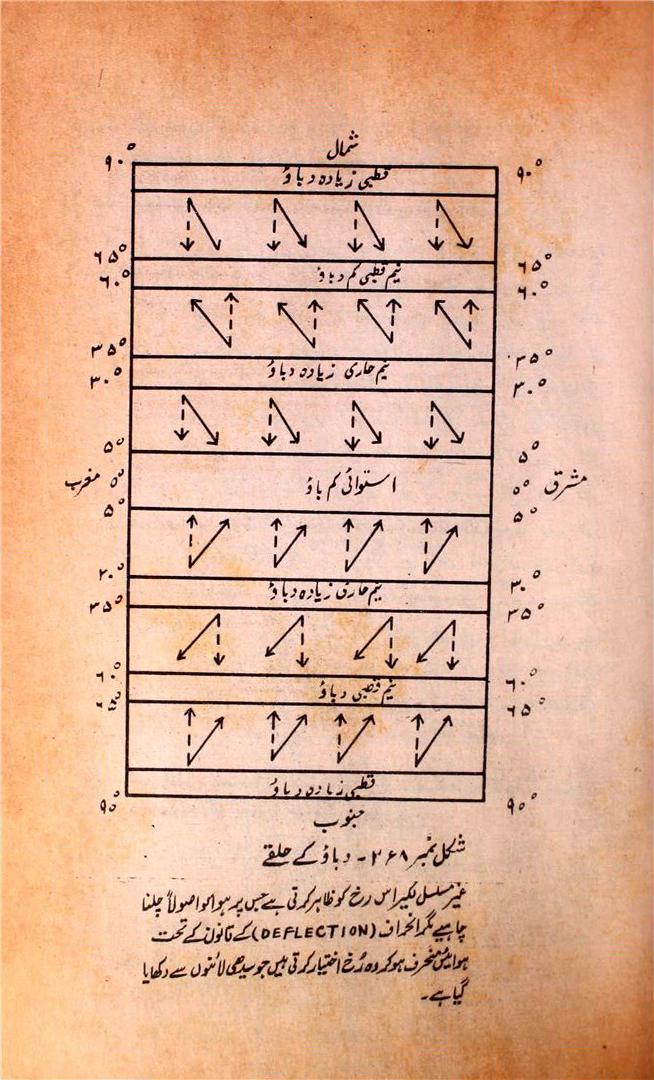 شمال
۹۰° ۹۰°
قطبی زیادہ دباؤ
۶۵° ۶۵°
نیم قطبی کم دباؤ
۶۰° ۶۰°
۳۵° ۳۵°
نیم حاری زیادہ دباؤ
۳۰° ۳۰°
۵° ۵°
مغرب ۰° استوائی کم باؤ ۰° مشرق
۵° ۵°
۲۰° ۳۰°
نیم حاری زیادہ دباؤ
۳۵° ۳۵°
۶۰° ۶۰°
نیم قطبی دباؤ
۶۵° ۶۵°
قطبی زیادہ دباؤ
۹۰° ۹۰°
جنوب
شکل نمبر ۲۶۸ ۔ دباؤ کے حلقے
غیر مسلسل لکیر اس رخ کو ظاہر کرتی ہے جس پر ہوا کو اصولاً چلنا
چاہیے مگر انحراف (DEFLECTION) کے قانون کے تحت
ہوائیں منحرف ہو کر وہ رُخ اختیار کرتی ہیں جو سیدھی لائنوں سے دکھایا
گیا ہے۔